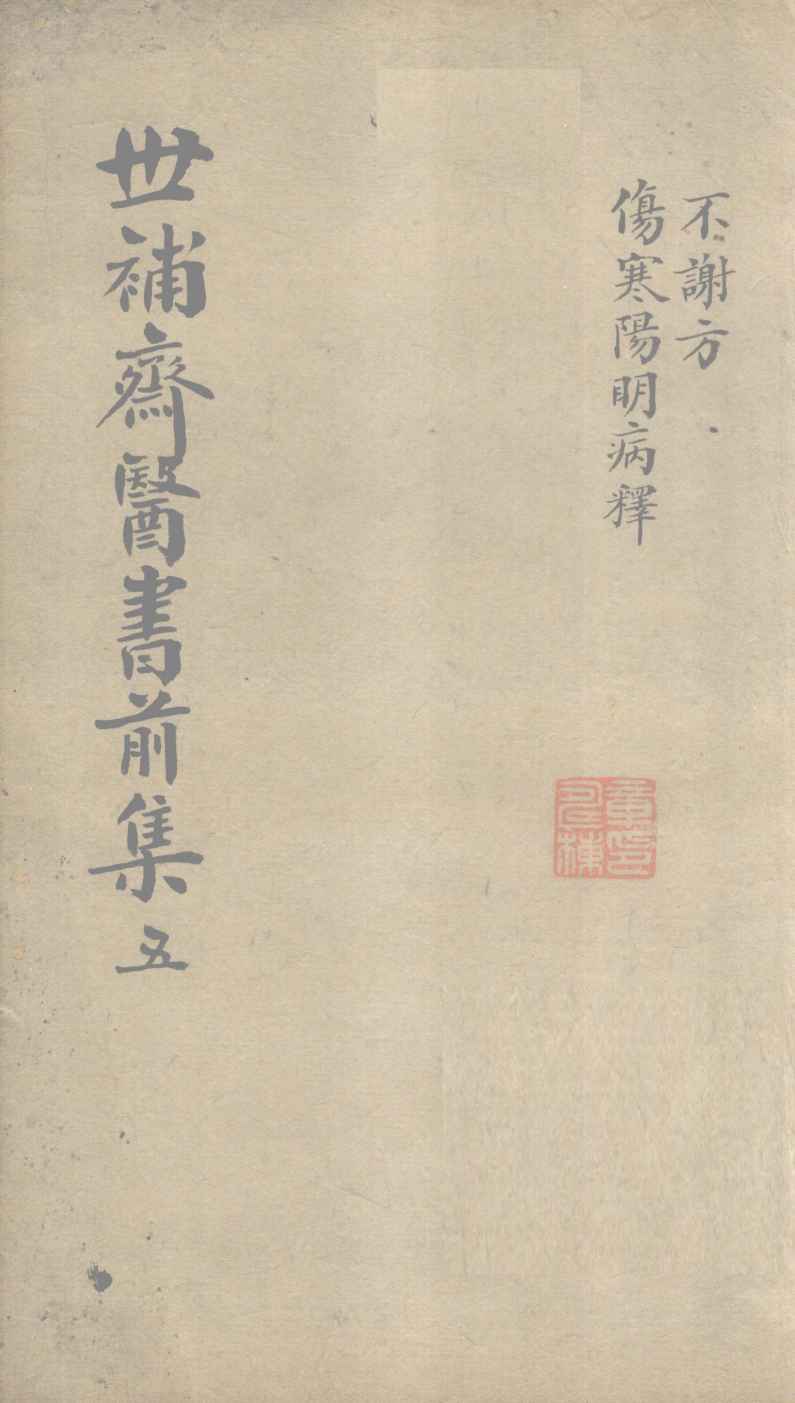 不謝方
傷寒陽明病釋
世補齋醫書前集五